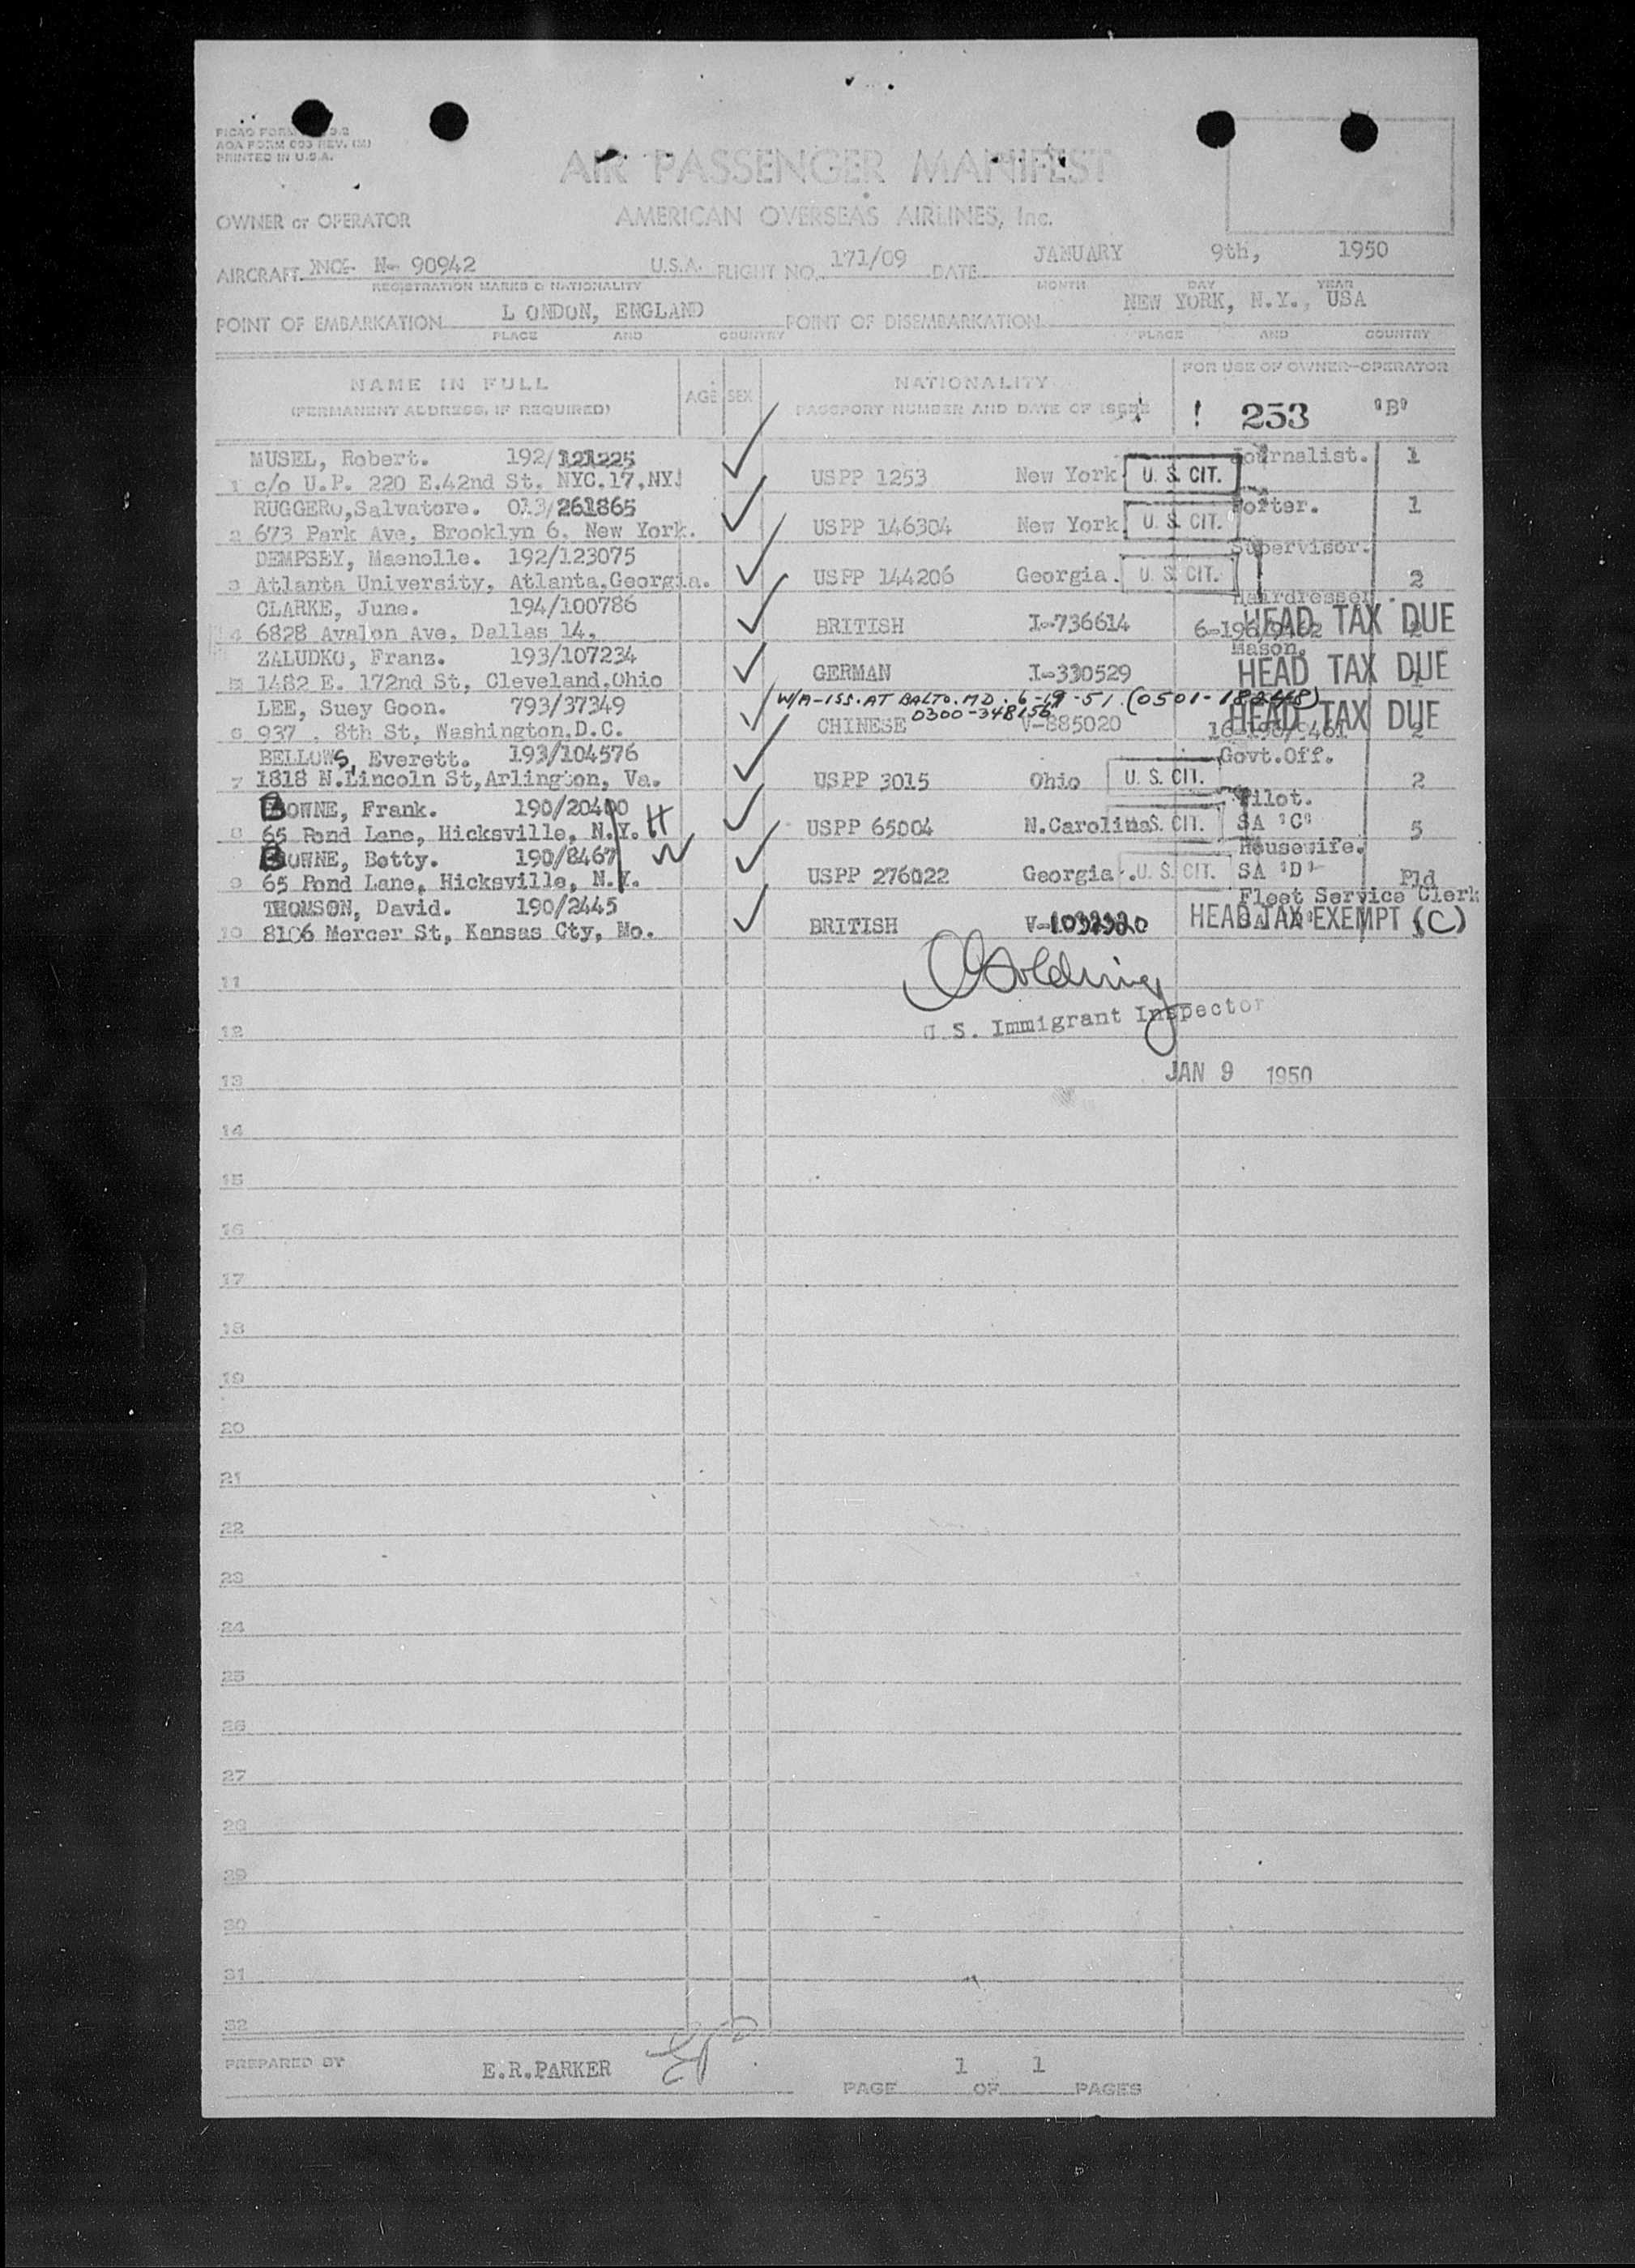 AOA FORM 003 REV. (M)
PRINTED IN U.S.A.
AIR PASSENGER MANIFEST
OWNER or OPERATOR AMERICAN OVERSEAS AIRLINES, Inc.
AIRCRAFT N- 90942 U.S.A. FLIGHT NO. 171/09 DATE JANUARY 9th, 1950
REGISTRATION MARKS & NATIONALITY MONTH DAY YEAR
POINT OF EMBARKATION L ONDON, ENGLAND POINT OF DISEMBARKATION NEW YORK, N.Y., USA
PLACE AND COUNTRY PLACE AND COUNTRY
NAME IN FULL AGE SEX NATIONALITY FOR USE OF OWNER-OPERATOR
(PERMANENT ADDRESS, IF REQUIRED) PASSPORT NUMBER AND DATE OF ISSUE 253 "B"
MUSEL, Robert. 192/121225 Journalist. 1
1 c/o U.P. 220 E.42nd St, NYC.17,NY. USPP 1253 New York U. S. CIT.
RUGGERO,Salvatore. 013/261865 Porter. 1
2 673 Park Ave, Brooklyn 6, New York. USPP 146304 New York U. S. CIT.
DEMPSEY, Maenelle. 192/123075 Supervisor.
3 Atlanta University, Atlanta,Georgia. USPP 144206 Georgia. U. S. CIT. 2
CLARKE, June. 194/100786 Hairdresser.
4 6828 Avalon Ave, Dallas 14, BRITISH I-736614 HEAD TAX DUE
ZALUDKO, Franz. 193/107234 Mason.
5 1482 E. 172nd St, Cleveland,Ohio GERMAN I-330529 HEAD TAX DUE
W/A-ISS. AT BALTO. MD. 6-19-51
LEE, Suey Goon. 793/37349 0300-348156
6 937 , 8th St, Washington,D.C. CHINESE V-885020 HEAD TAX DUE 2
BELLOWS, Everett. 193/104576 Govt.Off.
7 1818 N.Lincoln St,Arlington, Va. USPP 3015 Ohio U. S. CIT. 2
BOWNE, Frank. 190/20400 Pilot.
8 65 Pond Lane, Hicksville, N.Y. H USPP 65004 N.Carolina U. S. CIT. SA "C" 5
BOWNE, Betty. 190/8467 W Housewife.
9 65 Pond Lane, Hicksville, N.Y. USPP 276022 Georgia. U. S. CIT. SA "D" Pld
THOMSON, David. 190/2445 Fleet Service Clerk
10 8106 Mercer St, Kansas Cty, Mo. BRITISH HEAD TAX EXEMPT (C)
11
U. S. Immigrant Inspector
12
JAN 9 1950
13
14
15
16
17
18
19
20
21
22
23
24
25
26
27
28
29
30
31
32
PREPARED BY E.R.PARKER PAGE 1 OF 1 PAGES